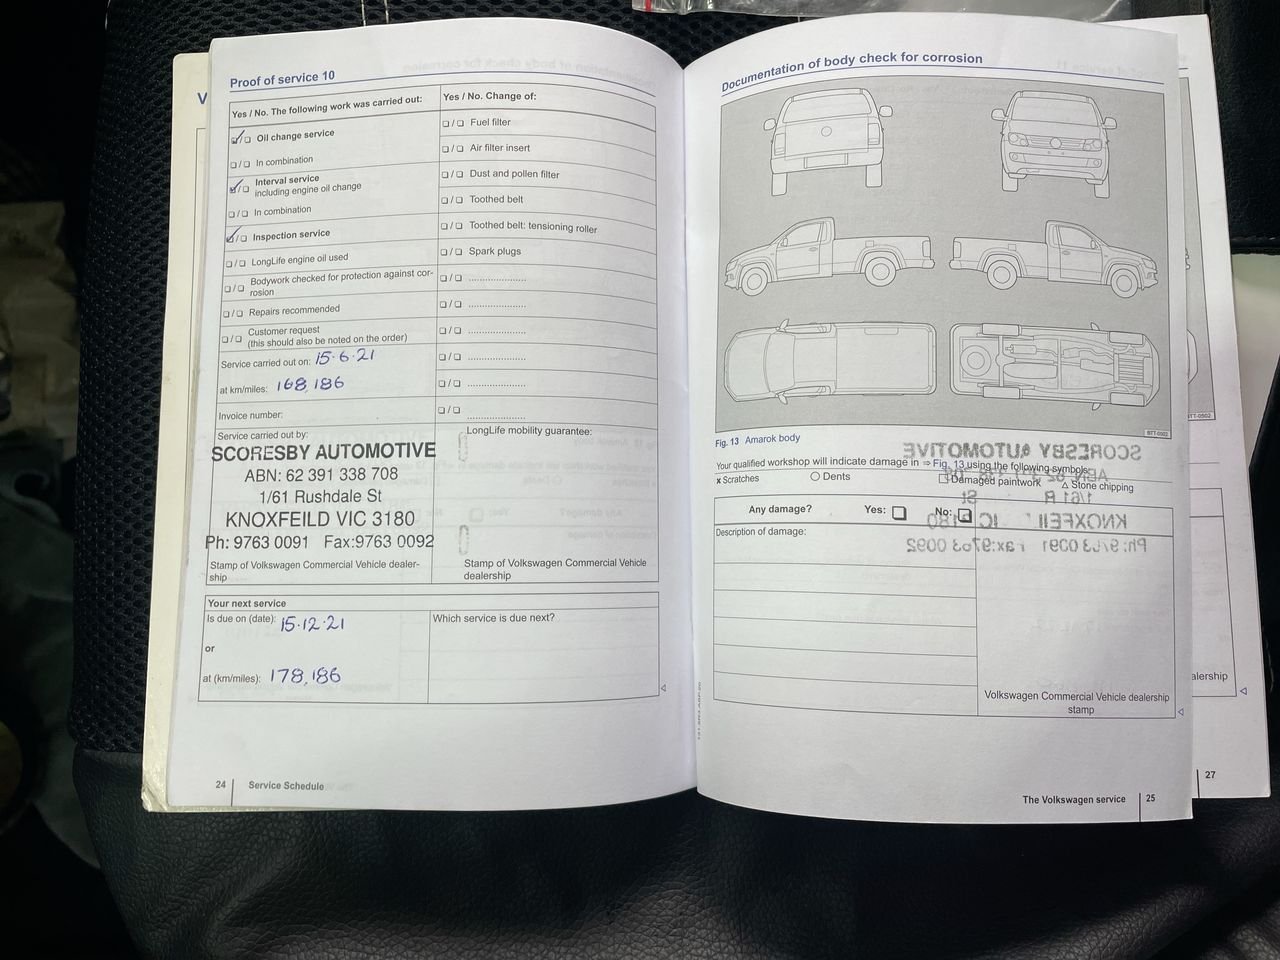 Proof of service 10
Yes / No. The following work was carried out:
Yes / No. Change of:
☑/☐ Oil change service
☐/☐ In combination
☑/☐ Interval service
including engine oil change
☐/☐ In combination
☑/☐ Inspection service
☐/☐ LongLife engine oil used
☐/☐ Bodywork checked for protection against cor-
rosion
☐/☐ Repairs recommended
☐/☐ Customer request
(this should also be noted on the order)
Service carried out on: 15·6·21
at km/miles: 168,186
Invoice number:
☐/☐ Fuel filter
☐/☐ Air filter insert
☐/☐ Dust and pollen filter
☐/☐ Toothed belt
☐/☐ Toothed belt: tensioning roller
☐/☐ Spark plugs
☐/☐ .....................
☐/☐ .....................
☐/☐ .....................
☐/☐ .....................
☐/☐ .....................
☐/☐ .....................
Service carried out by:
SCORESBY AUTOMOTIVE
ABN: 62 391 338 708
1/61 Rushdale St
KNOXFEILD VIC 3180
Ph: 9763 0091 Fax:9763 0092
Stamp of Volkswagen Commercial Vehicle dealer-
ship
LongLife mobility guarantee:
Stamp of Volkswagen Commercial Vehicle
dealership
Your next service
Is due on (date): 15·12·21
or
at (km/miles): 178,186
Which service is due next?
24 Service Schedule
Documentation of body check for corrosion
BTT-0502
Fig. 13 Amarok body
Your qualified workshop will indicate damage in ⇒ Fig. 13 using the following symbols:
x Scratches
○ Dents
☐ Damaged paintwork
△ Stone chipping
Any damage?
Yes: ☐
No: ☐
Description of damage:
Volkswagen Commercial Vehicle dealership
stamp
The Volkswagen service 25
BTT-0502
alership
27